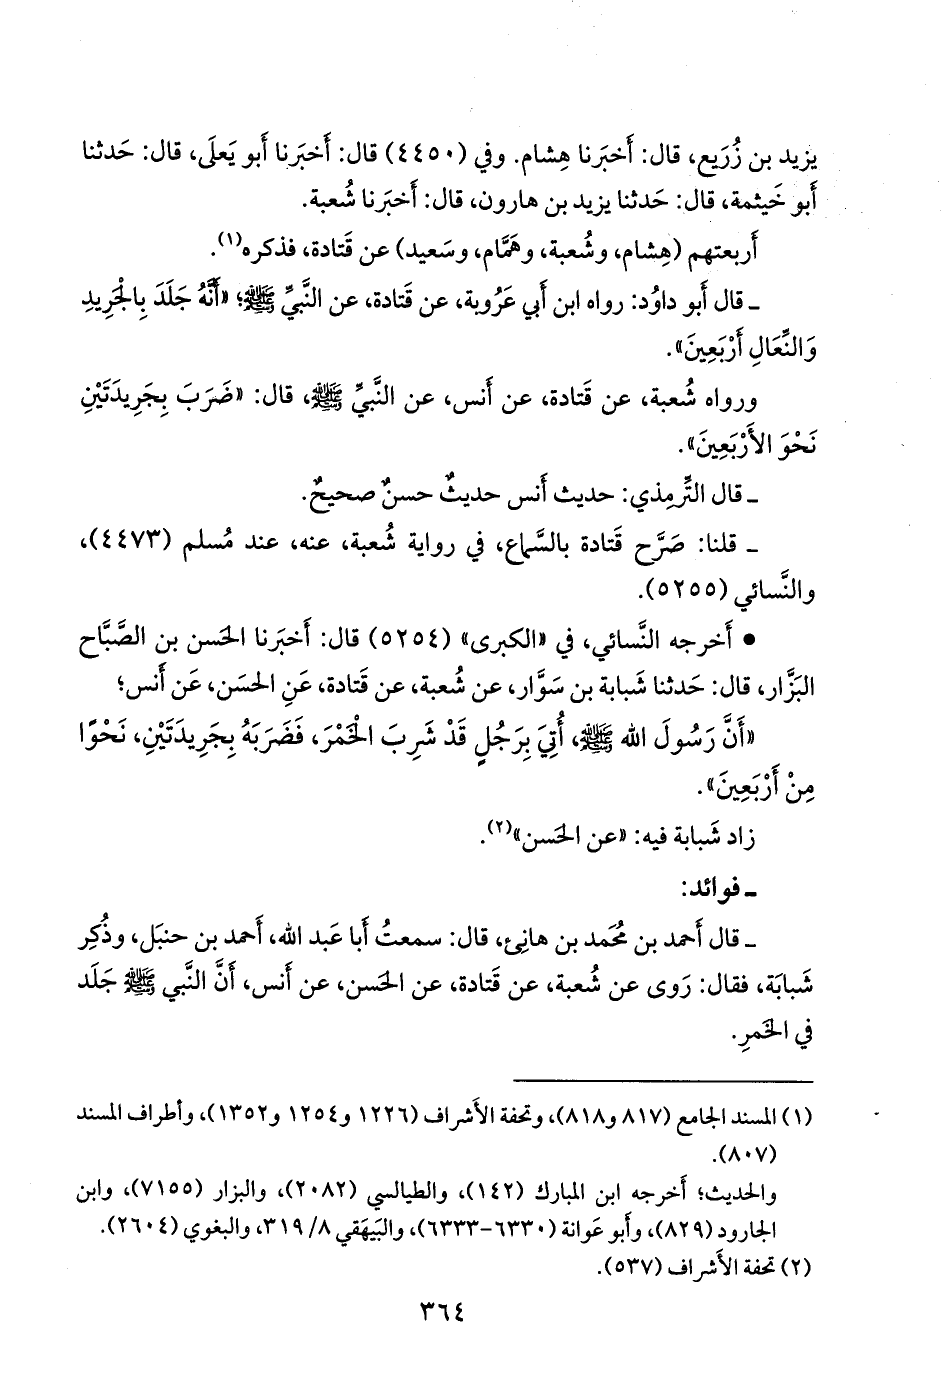 يزيد بن زُرَيع، قال: أَخبَرنا هِشام. وفي (٤٤٥٠) قال: أَخبَرنا أَبو يَعلَى، قال: حَدثنا
أَبو خَيثمة، قال: حَدثنا يزيد بن هارون، قال: أَخبَرنا شُعبة.
أَربعتهم (هِشام، وشُعبة، وهَمَّام، وسَعيد) عن قَتادة، فذكره(١).
ـ قال أَبو داوُد: رواه ابن أَبي عَرُوبة، عن قَتادة، عن النَّبيِّ ﷺ؛ «أَنَّهُ جَلَدَ بِالْجَرِيدِ
وَالنِّعَالِ أَرْبَعِينَ».
ورواه شُعبة، عن قَتادة، عن أَنس، عن النَّبيِّ ﷺ، قال: «ضَرَبَ بِجَرِيدَتَيْنِ
نَحْوَ الأَرْبَعِينَ».
ـ قال التِّرمِذي: حديث أَنس حديثٌ حسنٌ صحيحٌ.
ـ قلنا: صَرَّح قَتادة بالسَّماع، في رواية شُعبة، عنه، عند مُسلم (٤٤٧٣)،
والنَّسائي (٥٢٥٥).
• أَخرجه النَّسائي، في «الكبرى» (٥٢٥٤) قال: أَخبَرنا الحَسن بن الصَّبَّاح
البَزَّار، قال: حَدثنا شَبابة بن سَوَّار، عن شُعبة، عن قَتادة، عَنِ الحسَن، عَن أَنس؛
«أَنَّ رَسُولَ الله ﷺ، أُتِيَ بِرَجُلٍ قَدْ شَرِبَ الْخَمْرَ، فَضَرَبَهُ بِجَرِيدَتَيْنِ، نَحْوًا
مِنْ أَرْبَعِينَ».
زاد شَبابة فيه: «عن الحَسن»(٢).
ـ فوائد:
ـ قال أَحمد بن مُحَمد بن هانِئ، قال: سمعتُ أَبا عَبد الله، أَحمد بن حنبَل، وذُكِر
شَبابَة، فقال: رَوى عن شُعبة، عن قَتادة، عن الحَسن، عن أَنس، أَنَّ النَّبي ﷺ جَلَد
في الخَمرِ.
(١) المسند الجامع (٨١٧ و٨١٨)، وتحفة الأَشراف (١٢٢٦ و١٢٥٤ و١٣٥٢)، وأطراف المسند
(٨٠٧).
والحديث؛ أَخرجه ابن المبارك (١٤٢)، والطيالسي (٢٠٨٢)، والبزار (٧١٥٥)، وابن
الجارود (٨٢٩)، وأَبو عَوانة (٦٣٣٠-٦٣٣٣)، والبَيهَقي ٨/ ٣١٩، والبغوي (٢٦٠٤).
(٢) تحفة الأَشراف (٥٣٧).
٣٦٤